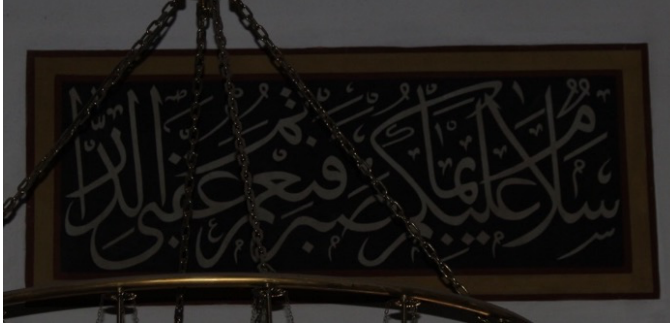 سلام عليكم بما صبرتم فنعم عقبى الدار